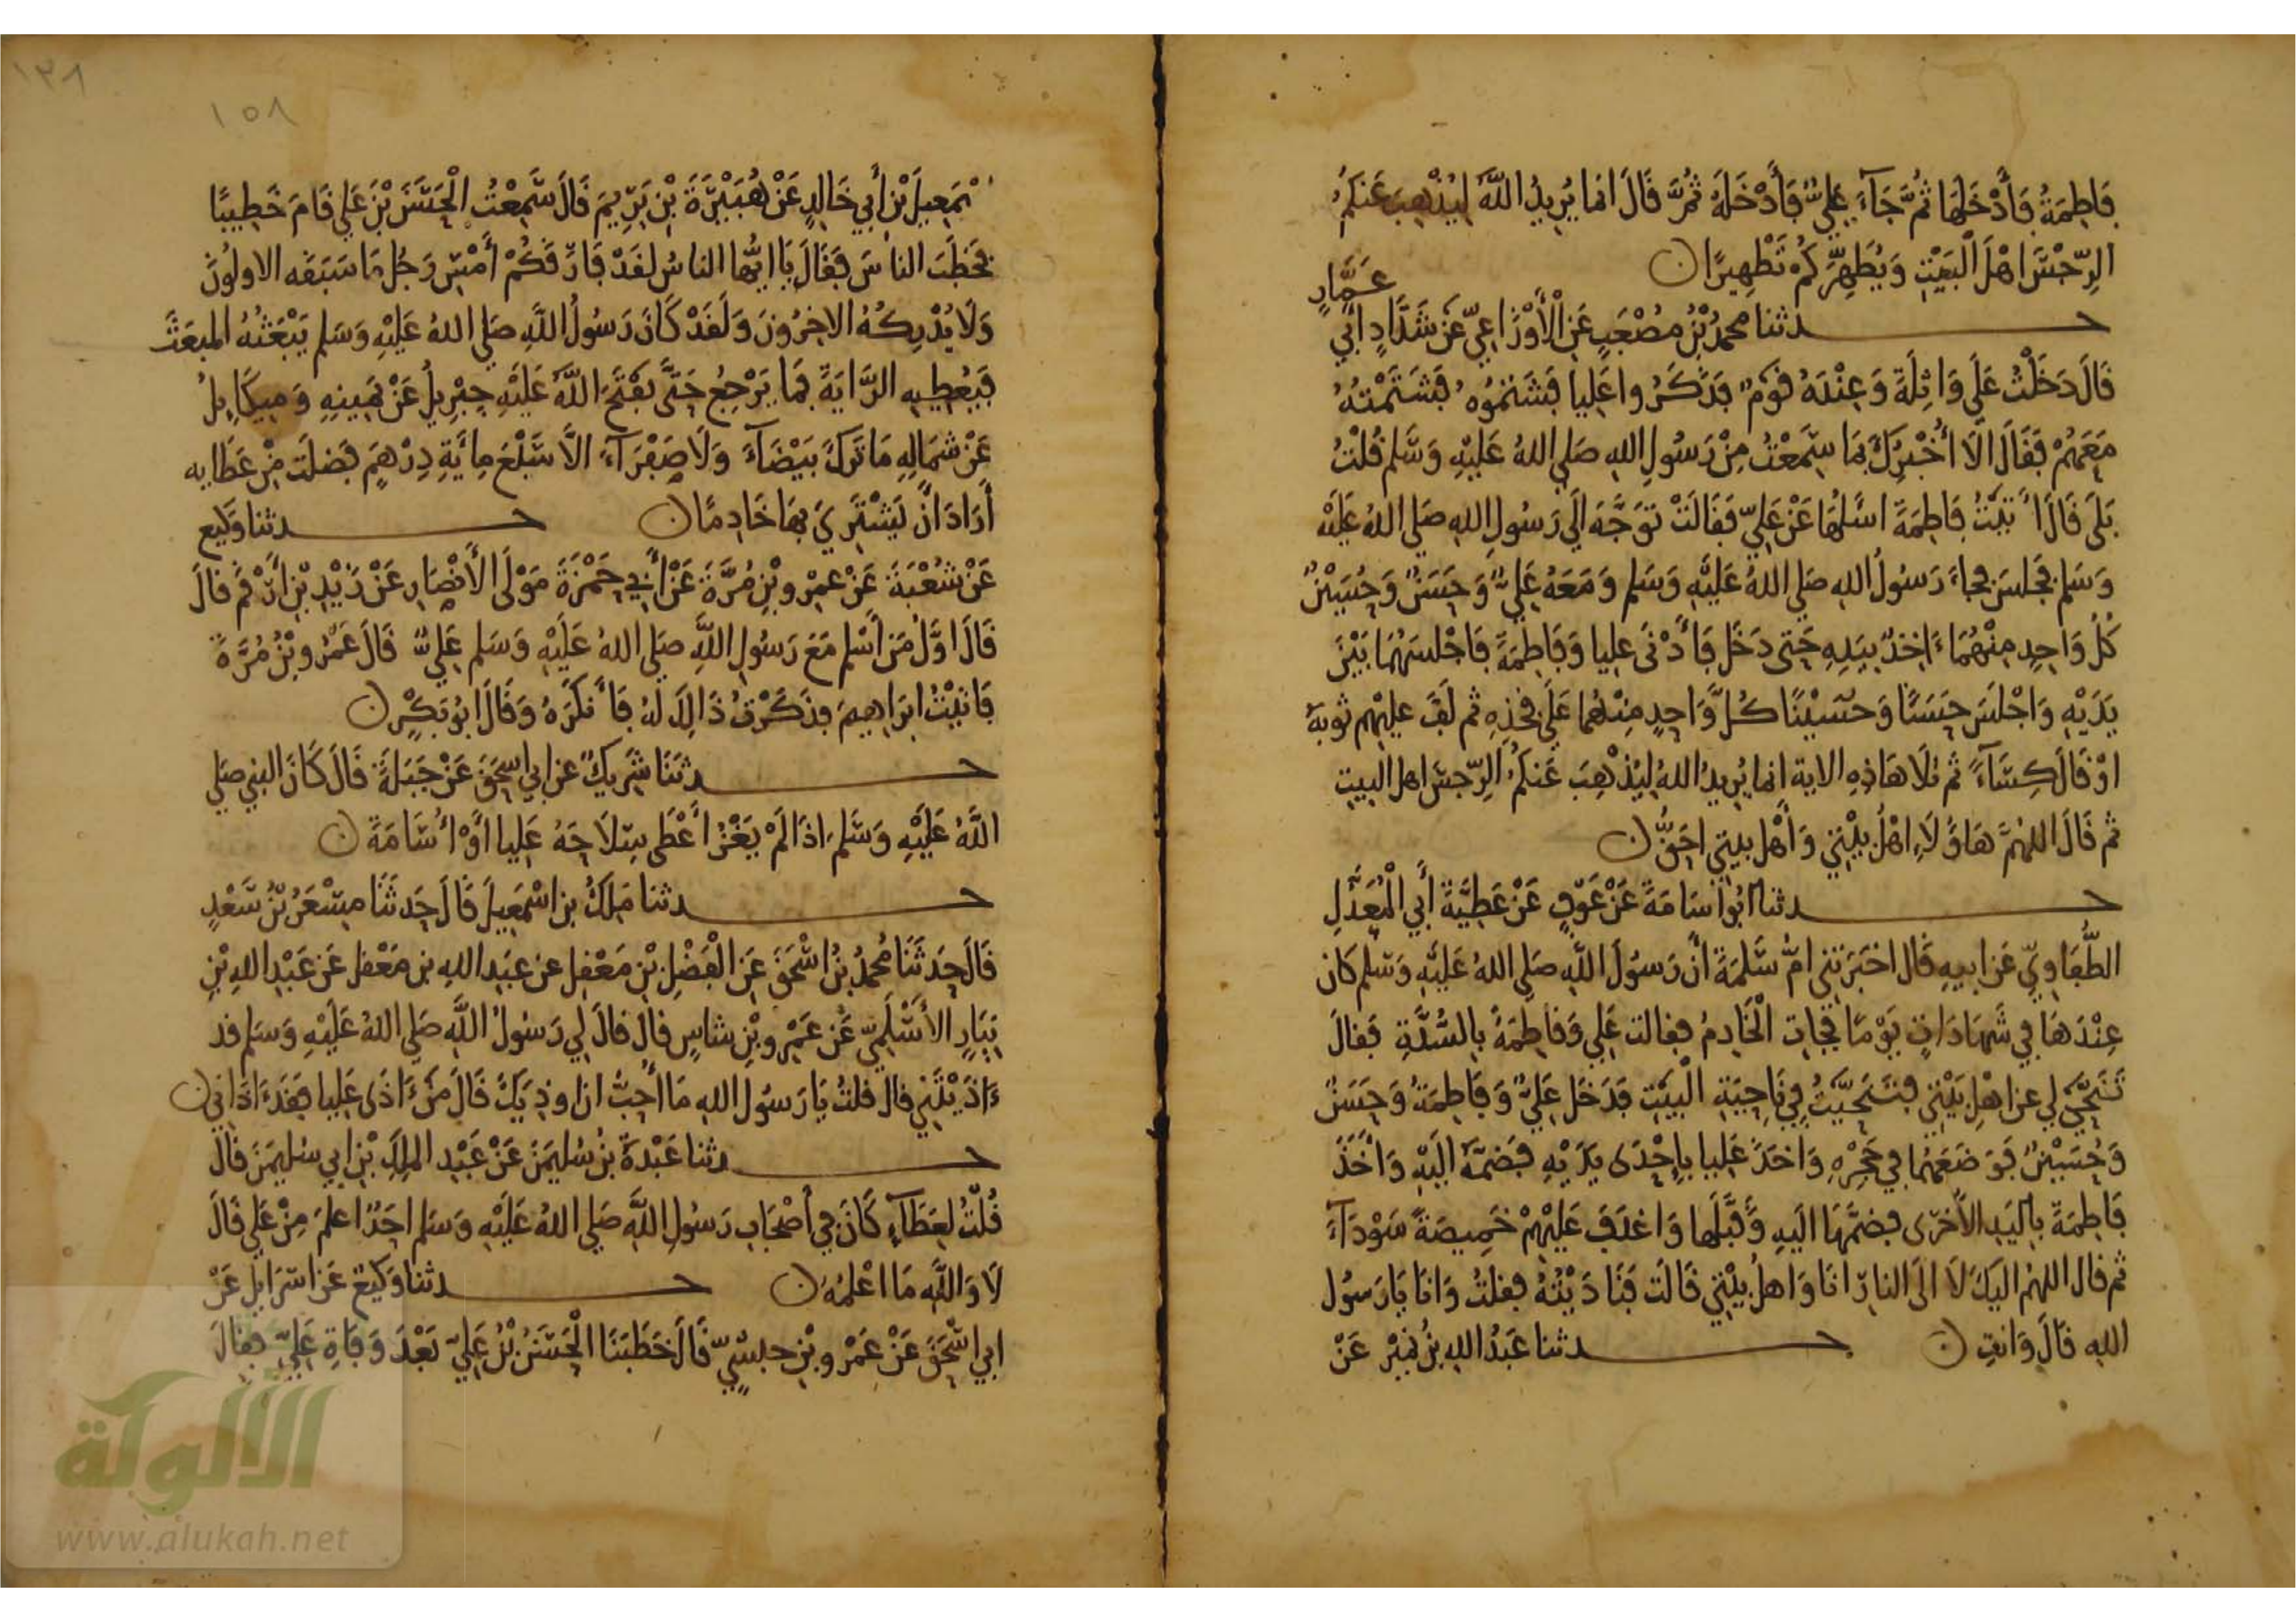 فَاطِمَةُ فَأَدْخَلَهَا ثُمَّ جَآءَ عَلِيٌّ فَأَدْخَلَهُ ثُمَّ قَالَ انما يُرِيدُ اللَّهُ لِيُذْهِبَ عَنكُمُ
الرِّجْسَ اهْلَ الْبَيْتِ وَيُطَهِّرَكُمْ تَطْهِيرًا
عَمَّارٍ
حدثنا محمدُ بْنُ مُصْعَبٍ عَنِ الْأَوْزَاعِيّ عَنْ شَدَّادٍ ابي
قَالَ دَخَلْتُ عَلَى وَاثِلَةَ وَعِنْدَهُ قَوْمٌ فَذَكَرُوا عَلِيا فَشَتَمُوهُ فَشَتَمْتُهُ
مَعَهُمْ فَقَالَ الَا أُخْبِرُكَ بِمَا سَمِعْتُ مِنْ رَسُولِ اللهِ صَلى اللهُ عَلَيْهِ وَسَّلم قُلْتُ
بَلَى قَالَ أَتَيْتُ فَاطِمَةَ اسْلُهَا عَنْ عَلِيّ فَقَالَتْ تَوَجَّهَ الَى رَسُولِ اللهِ صَلى اللهُ عَلَيْه
وَسَلم فجلسَ فجاءَ رَسُولُ اللهِ صَلى اللهُ عَلَيْهِ وَسَلم وَمَعَهُ عَلِيٌّ وَحَسَنٌ وَحُسَيْنٌ
كُلُّ وَاحِدٍ مِنْهُمَا ءَاخِذٌ بِيَدِهِ حَتى دَخَل فَأَدْنَى عليا وَفَاطِمَةَ فَاجْلسَهُمَا بَيْنَ
يَدَيْهِ وَاجْلَسَ حَسَنًا وَحُسَيْنًا كُلَّ وَاحِدٍ مِنْهُمَا عَلَى فَخِذِهِ ثم لَفَّ عليْهِم ثوبَهُ
اوْ قَالَ كِسَآءً ثم تلَا هَاذِهِ الاية انما يُرِيدُ اللهُ لِيُذْهِبَ عَنكُمُ الرِّجسَ اهل البيتِ
ثم قَالَ اللهُمَّ هَاؤُلَاءِ اهْلُ بيْتِي وَأَهْل بيتِي احَقُّ
حدثنا ابُو اسَامَةَ عَنْ عَوْفٍ عَنْ عَطِيَّةَ أَبِي الْمُعَدَّلِ
الطُّفَاوِيّ عَن ابيهِ قَال اخبَرَتنى امُّ سَّلمَةَ انَّ رَسُولَ اللَّهِ صَلى اللهُ عَلَيْهِ وَسَلم كَان
عِنْدَهَا فِي بَيْتِهَا ذَاتَ يَوْمًا فجَاتِ الْخَادِمُ فقالت عَلِي وَفَاطِمَةُ بِالسُّدَّةِ فَقالَ
تَنَحَّيْ لِي عن اهْلِ بَيْتِي فتَنَحَّيْتُ فِي نَاحِيَةِ الْبَيْتِ فَدَخَل عَلِيٌّ وَفَاطِمَةُ وَحَسَنٌ
وَحُسَيْنٌ فَوَضَعَهُمَا فِي حَجْرِهِ وَاخذَ عَلِيا بِإِحْدَى يَدَيْهِ فَضَمَّهُ الَيْهِ وَأَخَذَ
فَاطِمَةَ بِاليَدِ الاُخرَى فضمَّهَا الَيهِ وَقَبَّلَها وَاغدَفَ عَلَيْهِمْ خَمِيصَةً سَوْدَآءَ
ثم قال اللهُم الَيكَ لَا الَى النارِ انَا وَاهلُ بيْتِي قَالَت فَنَادَيْتُهُ فقلتُ وَانَا يَا رَسُول
اللهِ قَالَ وَانتِ حدثنا عَبْدُ اللهِ بْنُ نُمَيْرٍ عَنْ
١٣٨
١٥٨
اسْمَعِيلَ بْنِ أَبِي خَالِدٍ عَنْ هُبَيْرَةَ بْنِ يَرِيمَ قَالَ سَّمِعْتُ الْحَسَنَ بْنَ عَلِي قَامَ خَطِيبًا
فخَطَبَ الناسَ فَقَالَ يَا ايُّها الناسُ لقَدْ فَارَقَكُمْ أَمْسِ رَجُل مَا سَبَقَه الاولُونَ
وَلَا يُدْرِكُهُ الاخِرُونَ وَلَقَدْ كَانَ رَسُولُ اللَّهِ صَلى اللهُ عَلَيْهِ وَسَلم يَبْعَثُهُ المبعَثَ
فَيُعْطِيهِ الرَّايَةَ فمَا يَرْجِعُ حَتَّى يَفْتَحَ اللَّهُ عَلَيْهِ جِبْرِيلُ عَنْ يَمِينِهِ وَمِيكَايِلُ
عَنْ شِمَالِهِ مَا تَرَكَ بَيْضَآءَ وَلَا صَفْرَآءَ الَّا سَّبْعَ مِائَةِ دِرْهَمٍ فَضلَت مِنْ عَطَايه
أَرَادَ انْ يَشْتَرِيَ بِهَا خَادِمًا حدثنا وَكيع
عَنْ شُعْبَةَ عَنْ عَمْرو بْنِ مُرَّةَ عَنْ أَبِي حَمْزَةَ مَوْلَى الْأَنْصَارِ عَنْ زَيْدِ بْنِ أَرْقَمَ قَالَ
قَالَ اوَّلُ مَن اَسْلم مَعَ رَسُولِ اللَّهِ صَلى اللهُ عَلَيْهِ وَسَلم عَلِيٌّ قَالَ عَمْرُو بْنُ مُرَّةَ
فَاتيْتُ ابرَاهِيمَ فذَكَرْتُ ذَالِكَ لهُ فَأَنكَرَهُ وَقَالَ ابُو بَكْرٍ
حدثَنَا شَرِيكٌ عن ابي اسحَقَ عَنْ جَبَلَةَ قَالَ كَانَ النبي صَلى
اللَّهُ عَلَيْهِ وَسَّلم اذَا لَمْ يَغْزُ أَعْطَى سِلَاحَهُ عَلِيا أَوْ أُسَامَةَ
حدثنا مَلِكُ بن اسْمَعِيلَ قَالَ حَدثَنَا مِسْعَرُ بْنُ سَّعْدٍ
قَالَ حَدثَنَا مُحمدُ بنُ اسْحَقَ عَنِ الْفَضْلِ بْنِ مَعْقِلٍ عن عبَد اللهِ بن مَعْقل عَن عَبْدِ اللهِ بْنِ
نِيَارٍ الأَسْلَمِيّ عَن عَمْرِو بْنِ شاسٍ قالَ قالَ لِي رَسُولُ اللَّهِ صَلى اللهُ عَلَيْهِ وَسَلم قد
ءَاذَيْتَنِي قال قلتُ يَا رَسُولَ اللهِ مَا أُحِبُّ ان اوذِيَكَ قَالَ مَنْ ءَاذَى عَلِيا فقَد ءَاذَانِي
حدثنا عَبْدَةُ بنُ سُليمَنَ عَنْ عَبْدِ المَلِكِ بْنِ ابي سليمَنَ قالَ
قُلْتُ لِعَطَآءٍ كَانَ فِي أَصْحَابِ رَسُولِ اللَّهِ صَلى اللهُ عَلَيْهِ وَسَلم احَدٌ اعلمَ مِنْ عَلِي قَالَ
لَا وَاللَّهِ مَا اعْلَمُهُ حدثنا وَكِيعٌ عَن اسْرَايِلَ عَنْ
ابي اسْحَقَ عَنْ عَمْرو بْنِ حبشِيّ قَالَ خَطَبَنَا الْحَسَنُ بْنُ عَلِيّ بَعْدَ وَفَاةِ عَلِيّ فقالَ
الألوكة
www.alukah.net